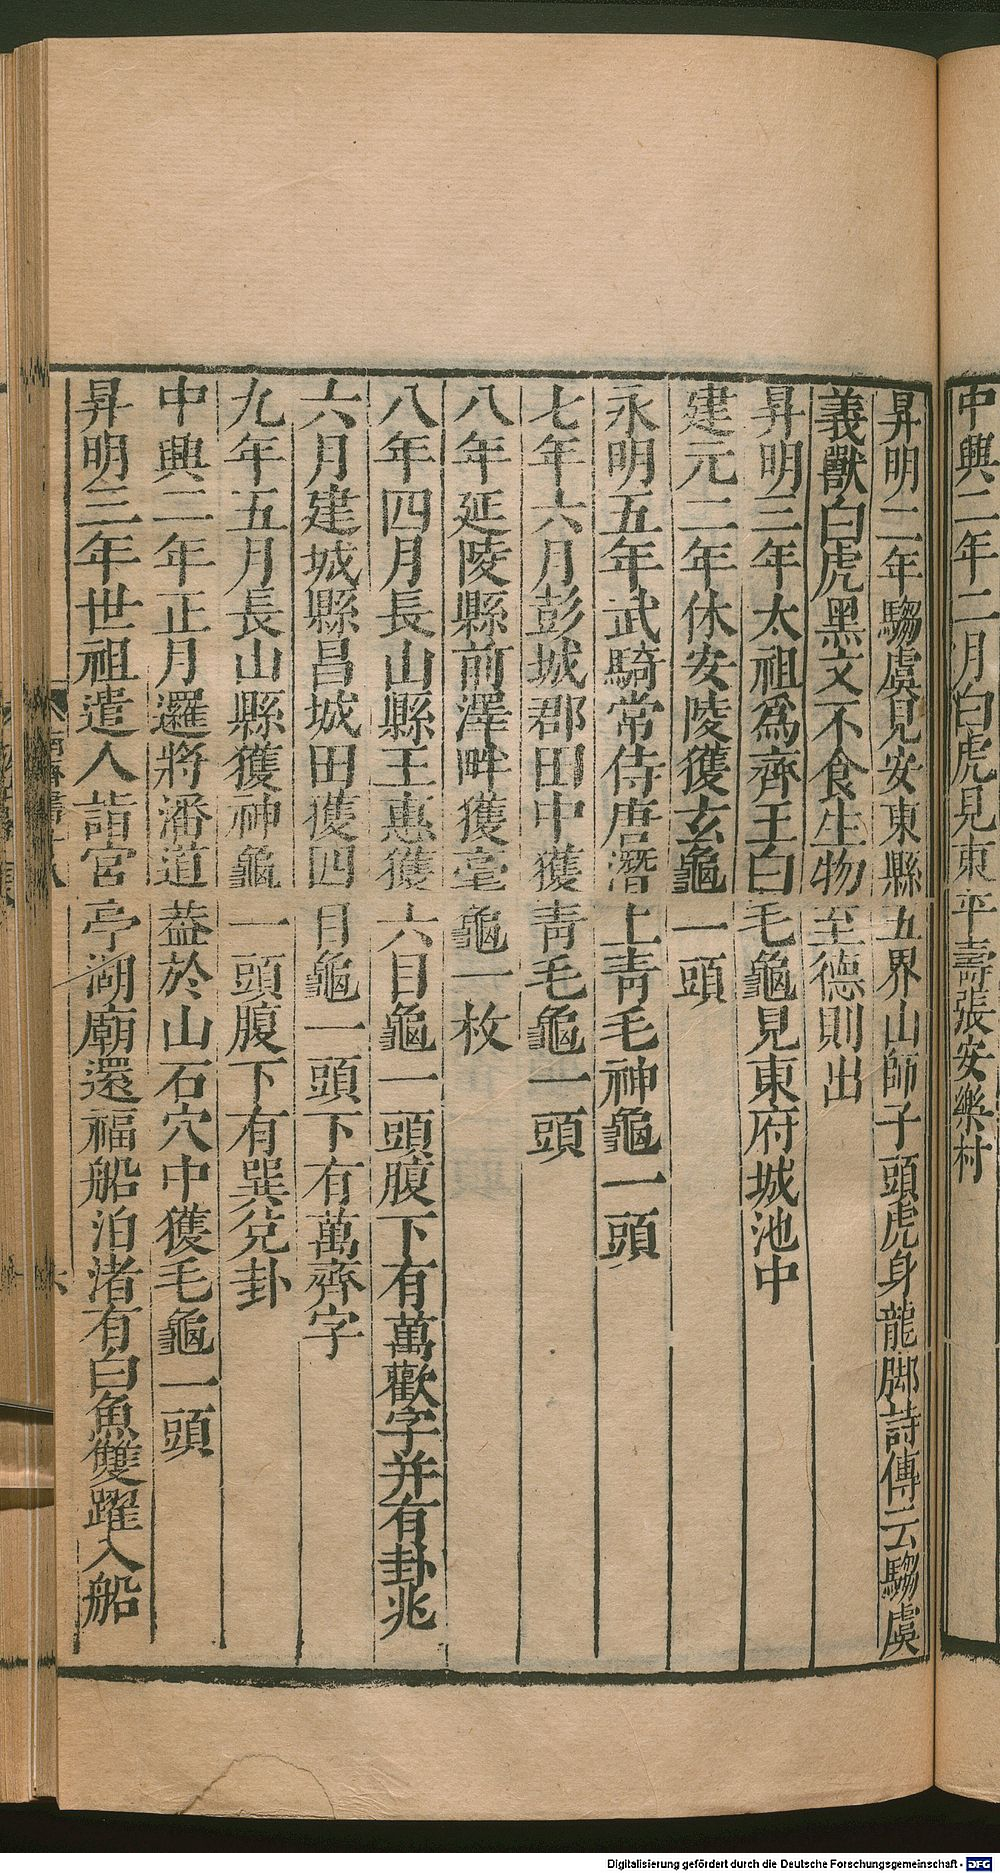 中興二年二月白虎見東平壽張安樂村
昇明二年騶虞見安東縣五界山師子頭虎身龍脚詩傳云騶虞
義獸白虎黑文不食生物至德則出
昇明三年太祖爲齊王白毛龜見東府城池中
建元二年休安陵獲玄龜一頭
永明五年武騎常侍唐潛上靑毛神龜一頭
七年六月彭城郡田中獲靑毛龜一頭
八年延陵縣前澤畔獲毫龜一枚
八年四月長山縣王惠獲六目龜一頭腹下有萬歡字并有卦兆
六月建城縣昌城田獲四目龜一頭下有萬齊字
九年五月長山縣獲神龜一頭腹下有巽兌卦
中興二年正月邏將潘道葢於山石穴中獲毛龜一頭
昇明三年世祖遣人詣宮亭湖廟還福船泊渚有白魚雙躍入船
Digitalisierung gefördert durch die Deutsche Forschungsgemeinschaft - DFG